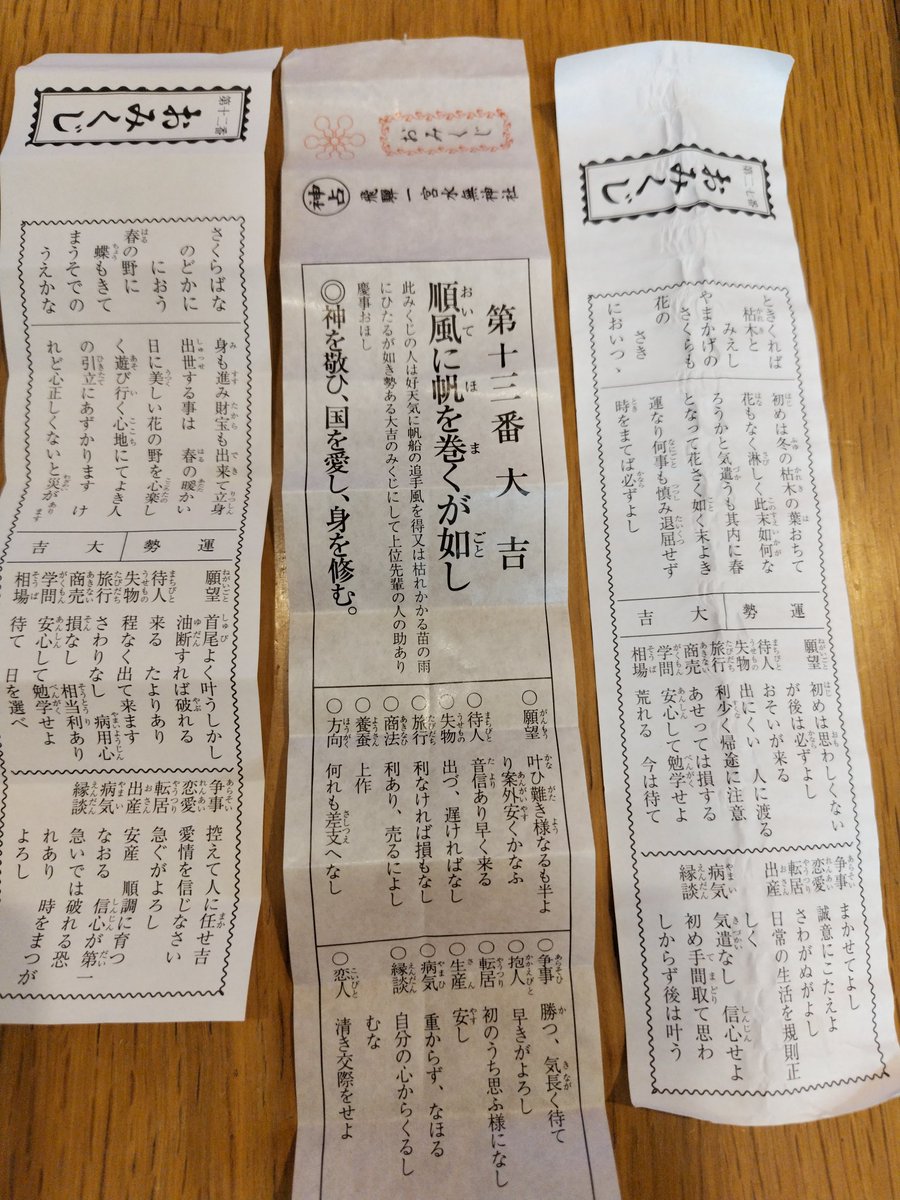 第十二番
おみくじ
さくらばな
のどかに
におう
春の野に
蝶もきて
まうそでの
うえかな
身も進み財宝も出来て立身
出世する事は 春の暖かい
日に美しい花の野を心楽し
く遊び行く心地にてよき人
の引立にあずかります け
れど心正しくないと災があります
運勢 大吉
願望 首尾よく叶うしかし
油断すれば破れる
待人 来る たよりあり
失物 程なく出て来ます
旅行 さわりなし 病用心
商売 損なし 相当利あり
学問 安心して勉学せよ
相場 待て 日を選べ
争事 控えて人に任せ吉
恋愛 愛情を信じなさい
転居 急ぐがよろし
出産 安産 順調に育つ
病気 なおる 信心が第一
縁談 急いでは破れる恐
れあり 時をまつが
よろし
おみくじ
神占 飛騨一宮水無神社
第十三番 大吉
順風に帆を巻くが如し
此みくじの人は好天気に帆船の追手風を得又は枯れかかる苗の雨
にひたるが如き勢ある大吉のみくじにして上位先輩の人の助あり
慶事おほし
◎神を敬ひ、国を愛し、身を修む。
○願望 叶ひ難き様なるも半よ
り案外安くかなふ
○待人 音信あり早く来る
○失物 出づ、遅ければなし
○旅行 利なければ損もなし
○商法 利あり、売るによし
○養蚕 上作
○方向 何れも差支へなし
○争事 勝つ、気長く待て
○抱人 早きがよろし
○転居 初のうち思ふ様になし
○生産 安し
○病気 重からず、なほる
○縁談 自分の心からくるし
むな
○恋人 清き交際をせよ
おみくじ
ときくれば
枯木と
みえし
やまかげの
さくらも
花の
さき
においつゝ
初めは冬の枯木の葉おちて
花もなく淋しく此末如何な
ろうかと気遣うも其内に春
となって花さく如く末よき
運なり何事も慎み退屈せず
時をまてば必ずよし
運勢 大吉
願望 初めは思わしくない
が後は必ずよし
待人 おそいが来る
失物 出にくい 人に渡る
旅行 利少く帰途に注意
商売 あせっては損する
学問 安心して勉学せよ
相場 荒れる 今は待て
争事 まかせてよし
恋愛 誠意にこたえよ
転居 さわがぬがよし
出産 日常の生活を規則正
しく
病気 気遣なし 信心せよ
縁談 初め手間取て思わ
しからず後は叶う